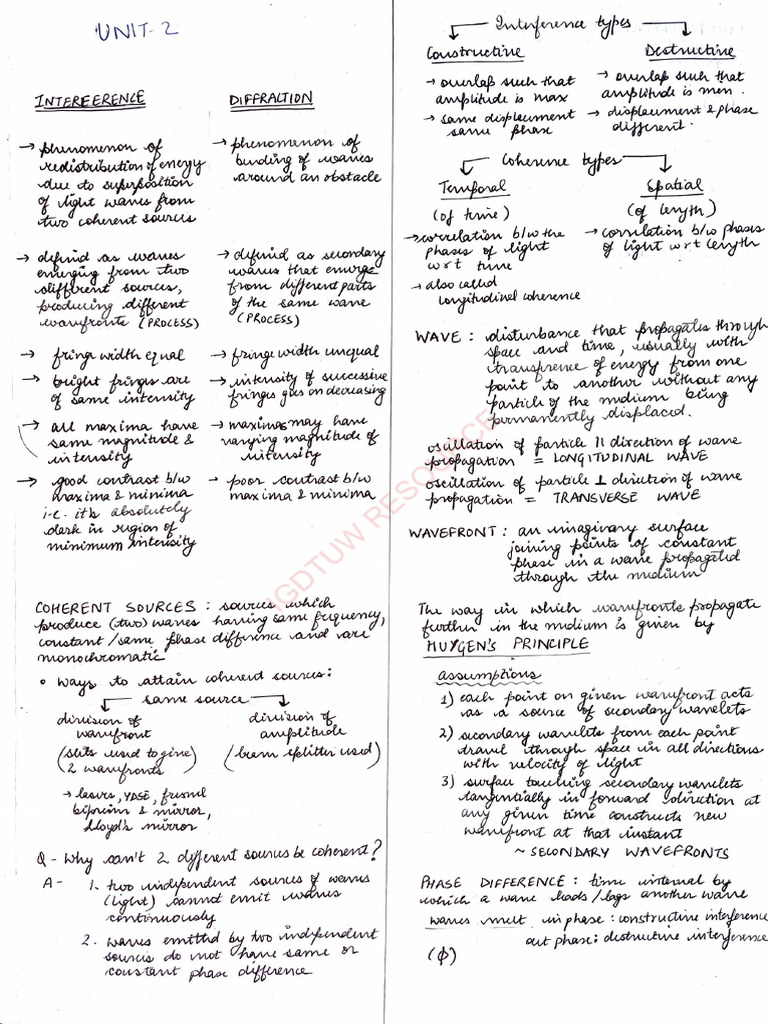 UNIT-2
INTERFERENCE
→ phenomenon of
redistribution of energy
due to superposition
of light waves from
two coherent sources
→ defind as waves
emerging from two
different sources,
producing different
wavefronts (PROCESS)
→ fringe width equal
→ bright fringes are
of same intensity
→ all maxima have
same magnitude &
intensity
→ good contrast b/w
maxima & minima
i.e. it's absolutely
dark in region of
minimum intensity
DIFFRACTION
→ phenomenon of
bending of waves
around an obstacle
→ defind as secondary
waves that emerge
from different parts
of the same wave
(PROCESS)
→ fringe width unqual
→ intensity of successive
fringes goes on decreasing
→ maximas may have
varying magnitude of
intensity
→ poor contrast b/w
maxima & minima
COHERENT SOURCES : sources which
produce (two) waves having same frequency,
constant/same phase difference and are
monochromatic
• ways to attain coherent sources:
same source
division of
wavefront
(slits used to give)
2 wavefronts
→ lasers, YDSE, fresnel
biprism & mirror,
Lloyd's mirror
division of
amplitude
(beam splitter used)
Q - Why can't 2 different sources be coherent?
A - 1. two independent sources of waves
(light) cannot emit waves
continuously
2. waves emittd by two independent
sources do not have same or
constant phase difference
Interference types
Constructive
→ overlap such that
amplitude is max
→ same displacement
same phase
Destructive
→ overlap such that
amplitude is men.
→ displaument & phase
different.
Coherence types
Temporal
(of time)
→ correlation b/w the
phases of light
wrt time
→ also called
longitudinal coherence
Spatial
(of length)
→ correlation b/w phases
of light wrt length
WAVE : disturbance that propagates through
space and time, usually with
transference of energy from one
point to another without any
particle of the medium being
permanently displaced.
oscillation of particle || direction of wave
propagation = LONGITUDINAL WAVE
oscillation of particle ⊥ direction of wave
propagation = TRANSVERSE WAVE
WAVEFRONT : an imaginary surface
joining points of constant
phase in a wave propagated
through the medium
The way in which wavefronts propagate
further in the medium is given by
HUYGEN'S PRINCIPLE
assumptions
1) each point on given wavefront acts
as a source of secondary wavelets
2) secondary wavelets from each point
travel though space in all directions
with velocity of light
3) surface touching secondary wavelets
tangentially in forward direction at
any given time constructs new
wavefront at that instant
~ SECONDARY WAVEFRONTS
PHASE DIFFERENCE : time interval by
which a wave leads/lags another wave
waves meet in phase : constructive interference
out phase : destructive interference
(ϕ)
IGDTUW RESOURCES